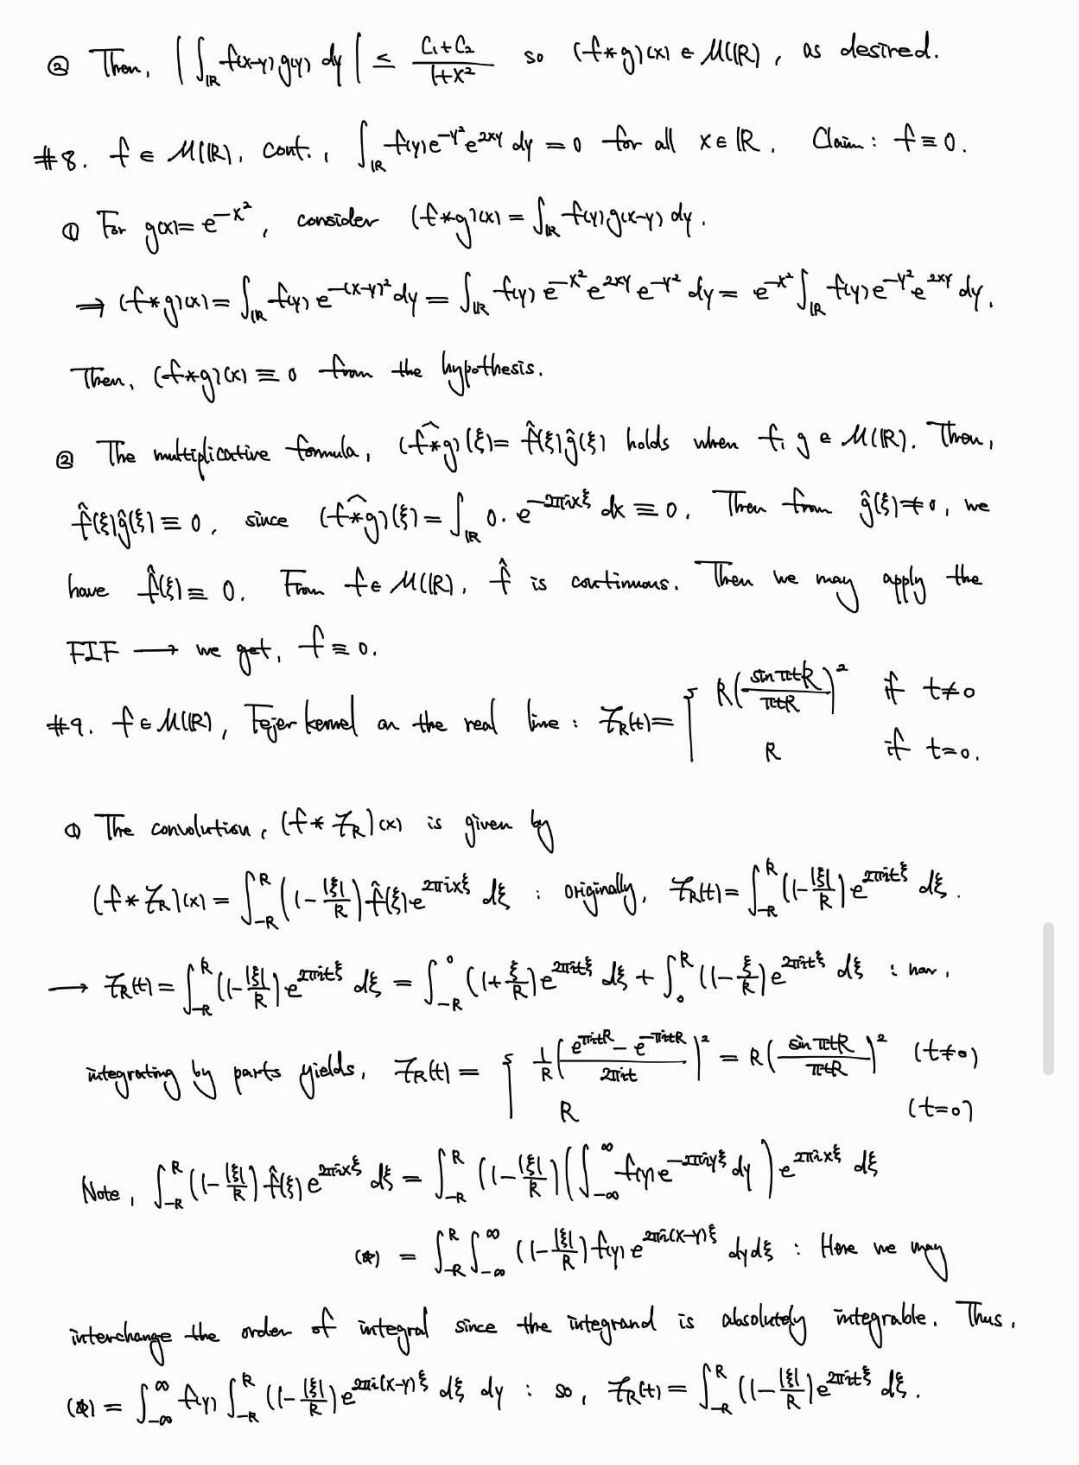 ② Then, |∫_ℝ f(x-y)g(y) dy| ≤ (C₁+C₂)/(1+x²) so (f*g)(x) ∈ M(ℝ), as desired.
#8. f ∈ M(ℝ), cont., ∫_ℝ f(y)e^{-y²}e^{2xy} dy = 0 for all x ∈ ℝ. Claim : f ≡ 0.
① For g(x) = e^{-x²}, consider (f*g)(x) = ∫_ℝ f(y)g(x-y) dy.
→ (f*g)(x) = ∫_ℝ f(y) e^{-(x-y)²} dy = ∫_ℝ f(y) e^{-x²}e^{2xy}e^{-y²} dy = e^{-x²} ∫_ℝ f(y)e^{-y²}e^{2xy} dy.
Then, (f*g)(x) ≡ 0 from the hypothesis.
② The multiplicative formula, (f*g)^(ξ) = f̂(ξ)ĝ(ξ) holds when f, g ∈ M(ℝ). Then,
f̂(ξ)ĝ(ξ) ≡ 0, since (f*g)^(ξ) = ∫_ℝ 0 · e^{-2πixξ} dx ≡ 0. Then from ĝ(ξ) ≠ 0, we
have f̂(ξ) ≡ 0. From f ∈ M(ℝ), f̂ is continuous. Then we may apply the
FIF → we get, f ≡ 0.
#9. f ∈ M(ℝ), Fejer kernel on the real line : F_R(t) = { R(sin πtR / πtR)² if t≠0
R if t=0.
① The convolution, (f * F_R)(x) is given by
(f * F_R)(x) = ∫_{-R}^{R} (1 - |ξ|/R) f̂(ξ)e^{2πixξ} dξ : originally, F_R(t) = ∫_{-R}^{R} (1 - |ξ|/R)e^{2πitξ} dξ.
→ F_R(t) = ∫_{-R}^{R} (1 - |ξ|/R)e^{2πitξ} dξ = ∫_{-R}^{0} (1 + ξ/R)e^{2πitξ} dξ + ∫_{0}^{R} (1 - ξ/R)e^{2πitξ} dξ : now,
integrating by parts yields, F_R(t) = { 1/R ((e^{πitR} - e^{-πitR}) / 2πit)² = R(sin πtR / πtR)² (t≠0)
R (t=0)
Note, ∫_{-R}^{R} (1 - |ξ|/R) f̂(ξ) e^{2πixξ} dξ = ∫_{-R}^{R} (1 - |ξ|/R)(∫_{-∞}^{∞} f(y)e^{-2πiyξ} dy) e^{2πixξ} dξ
(*) = ∫_{-R}^{R} ∫_{-∞}^{∞} (1 - |ξ|/R) f(y) e^{2πi(x-y)ξ} dydξ : Here we may
interchange the order of integral since the integrand is absolutely integrable. Thus,
(*) = ∫_{-∞}^{∞} f(y) ∫_{-R}^{R} (1 - |ξ|/R)e^{2πi(x-y)ξ} dξ dy : so, F_R(t) = ∫_{-R}^{R} (1 - |ξ|/R)e^{2πitξ} dξ.